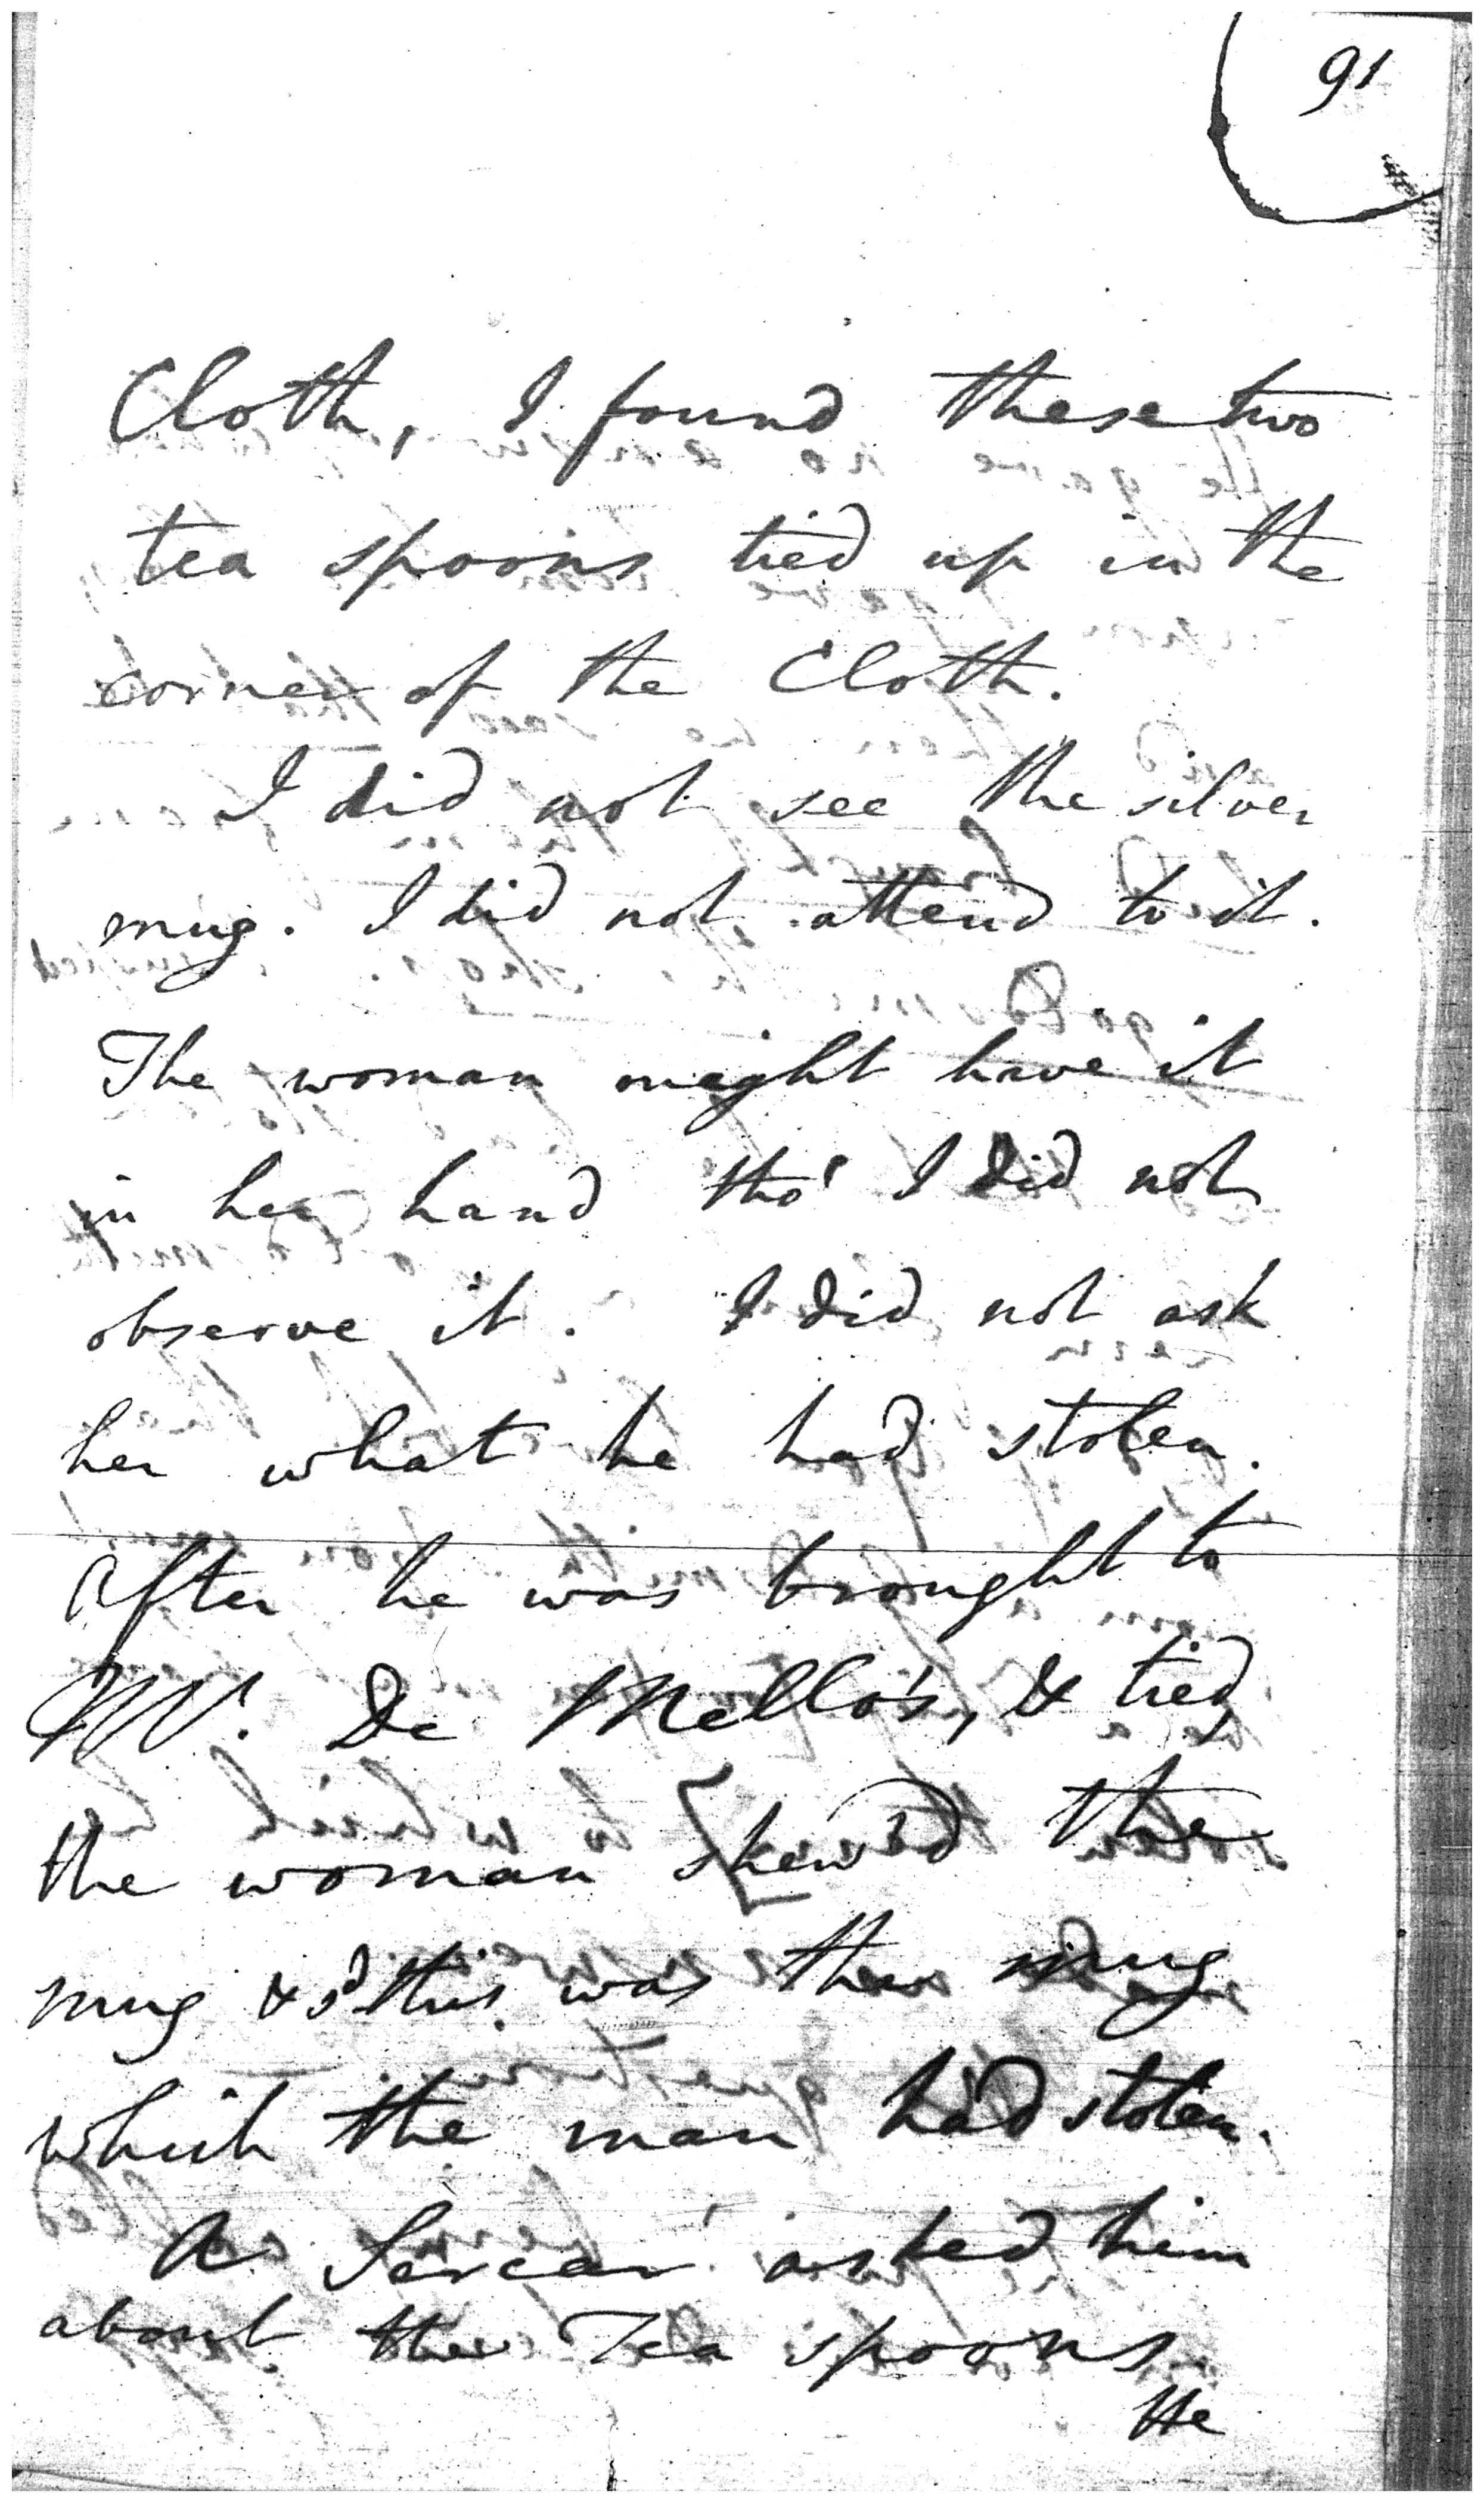 91
Cloth, I found these two
tea spoons tied up in the
corner of the Cloth.
I did not see the silver
mug. I did not attend to it.
The woman might have it
in her hand tho' I did not
observe it. I did not ask
her what he had stolen.
After he was brought to
Mr. De Mello's, & tied
the woman shew'd the
mug & sd this was the mug
which the man had stolen.
A Sircar asked him
about the Tea spoons
He